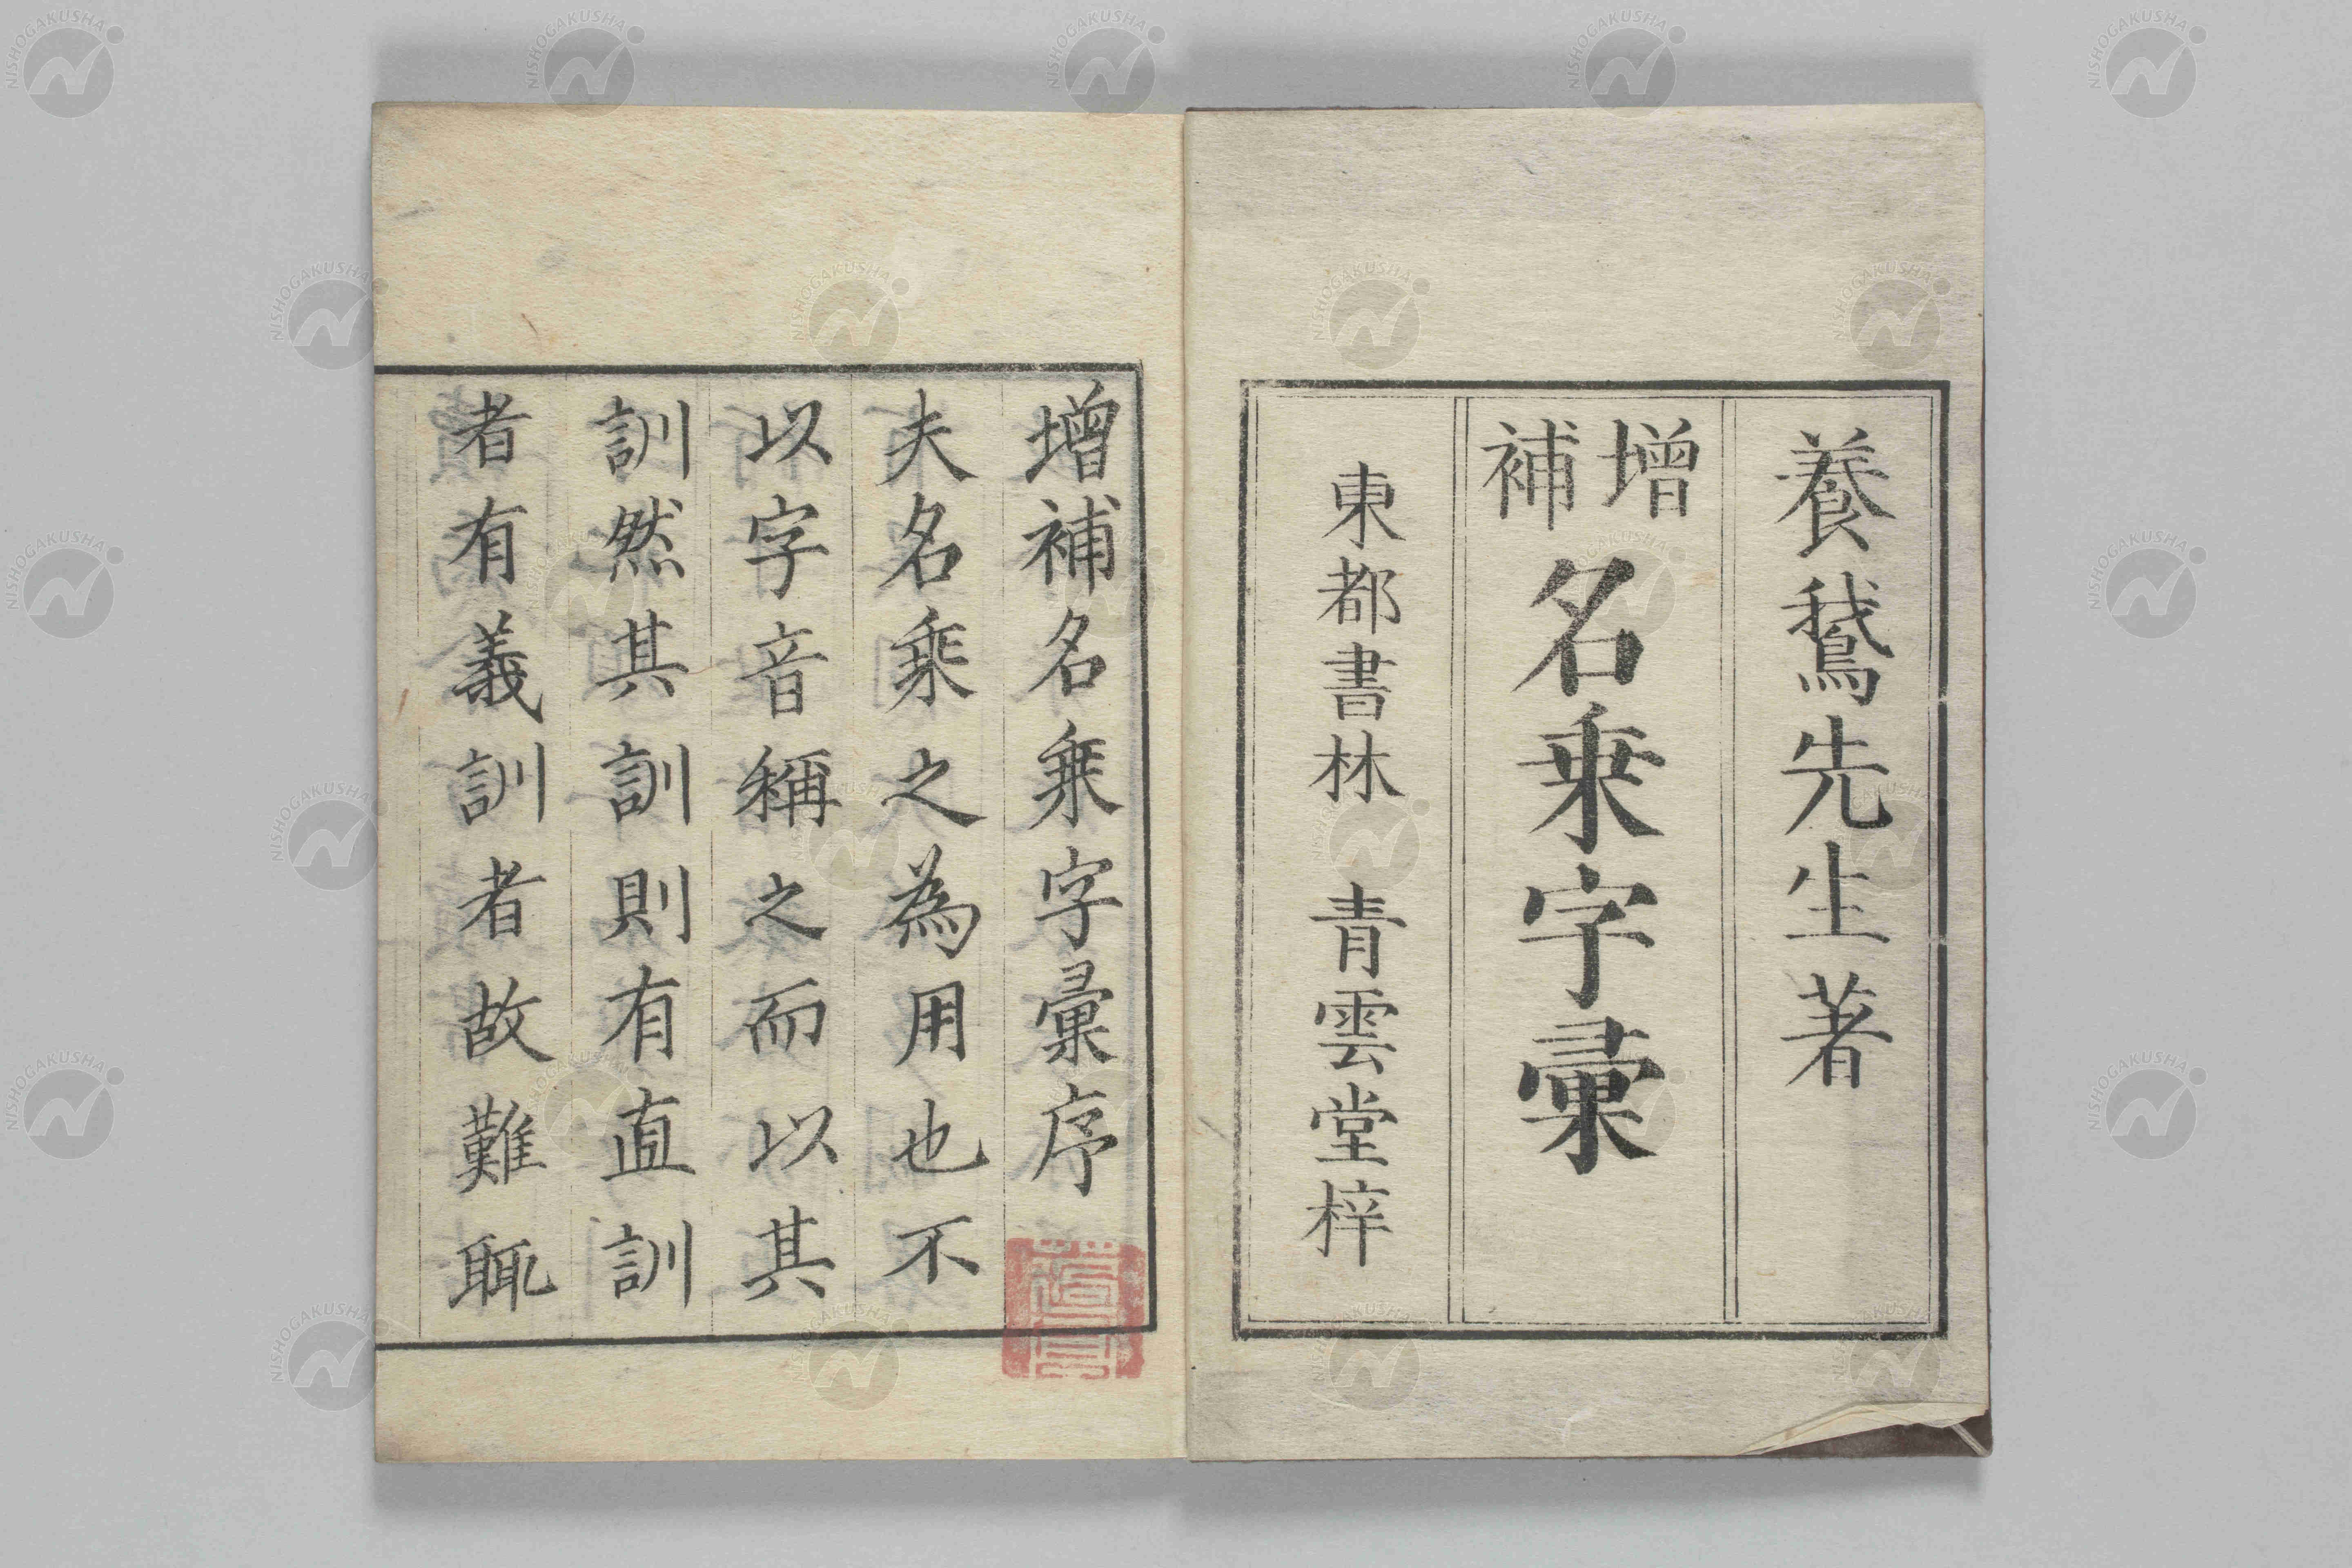 養鵞先生著
增補
名乗字彙
東都書林 青雲堂梓
增補名乘字彙序
夫名乘之為用也不
以字音稱之而以其
訓然其訓則有直訓
者有義訓者故難輒
NISHOGAKUSHA